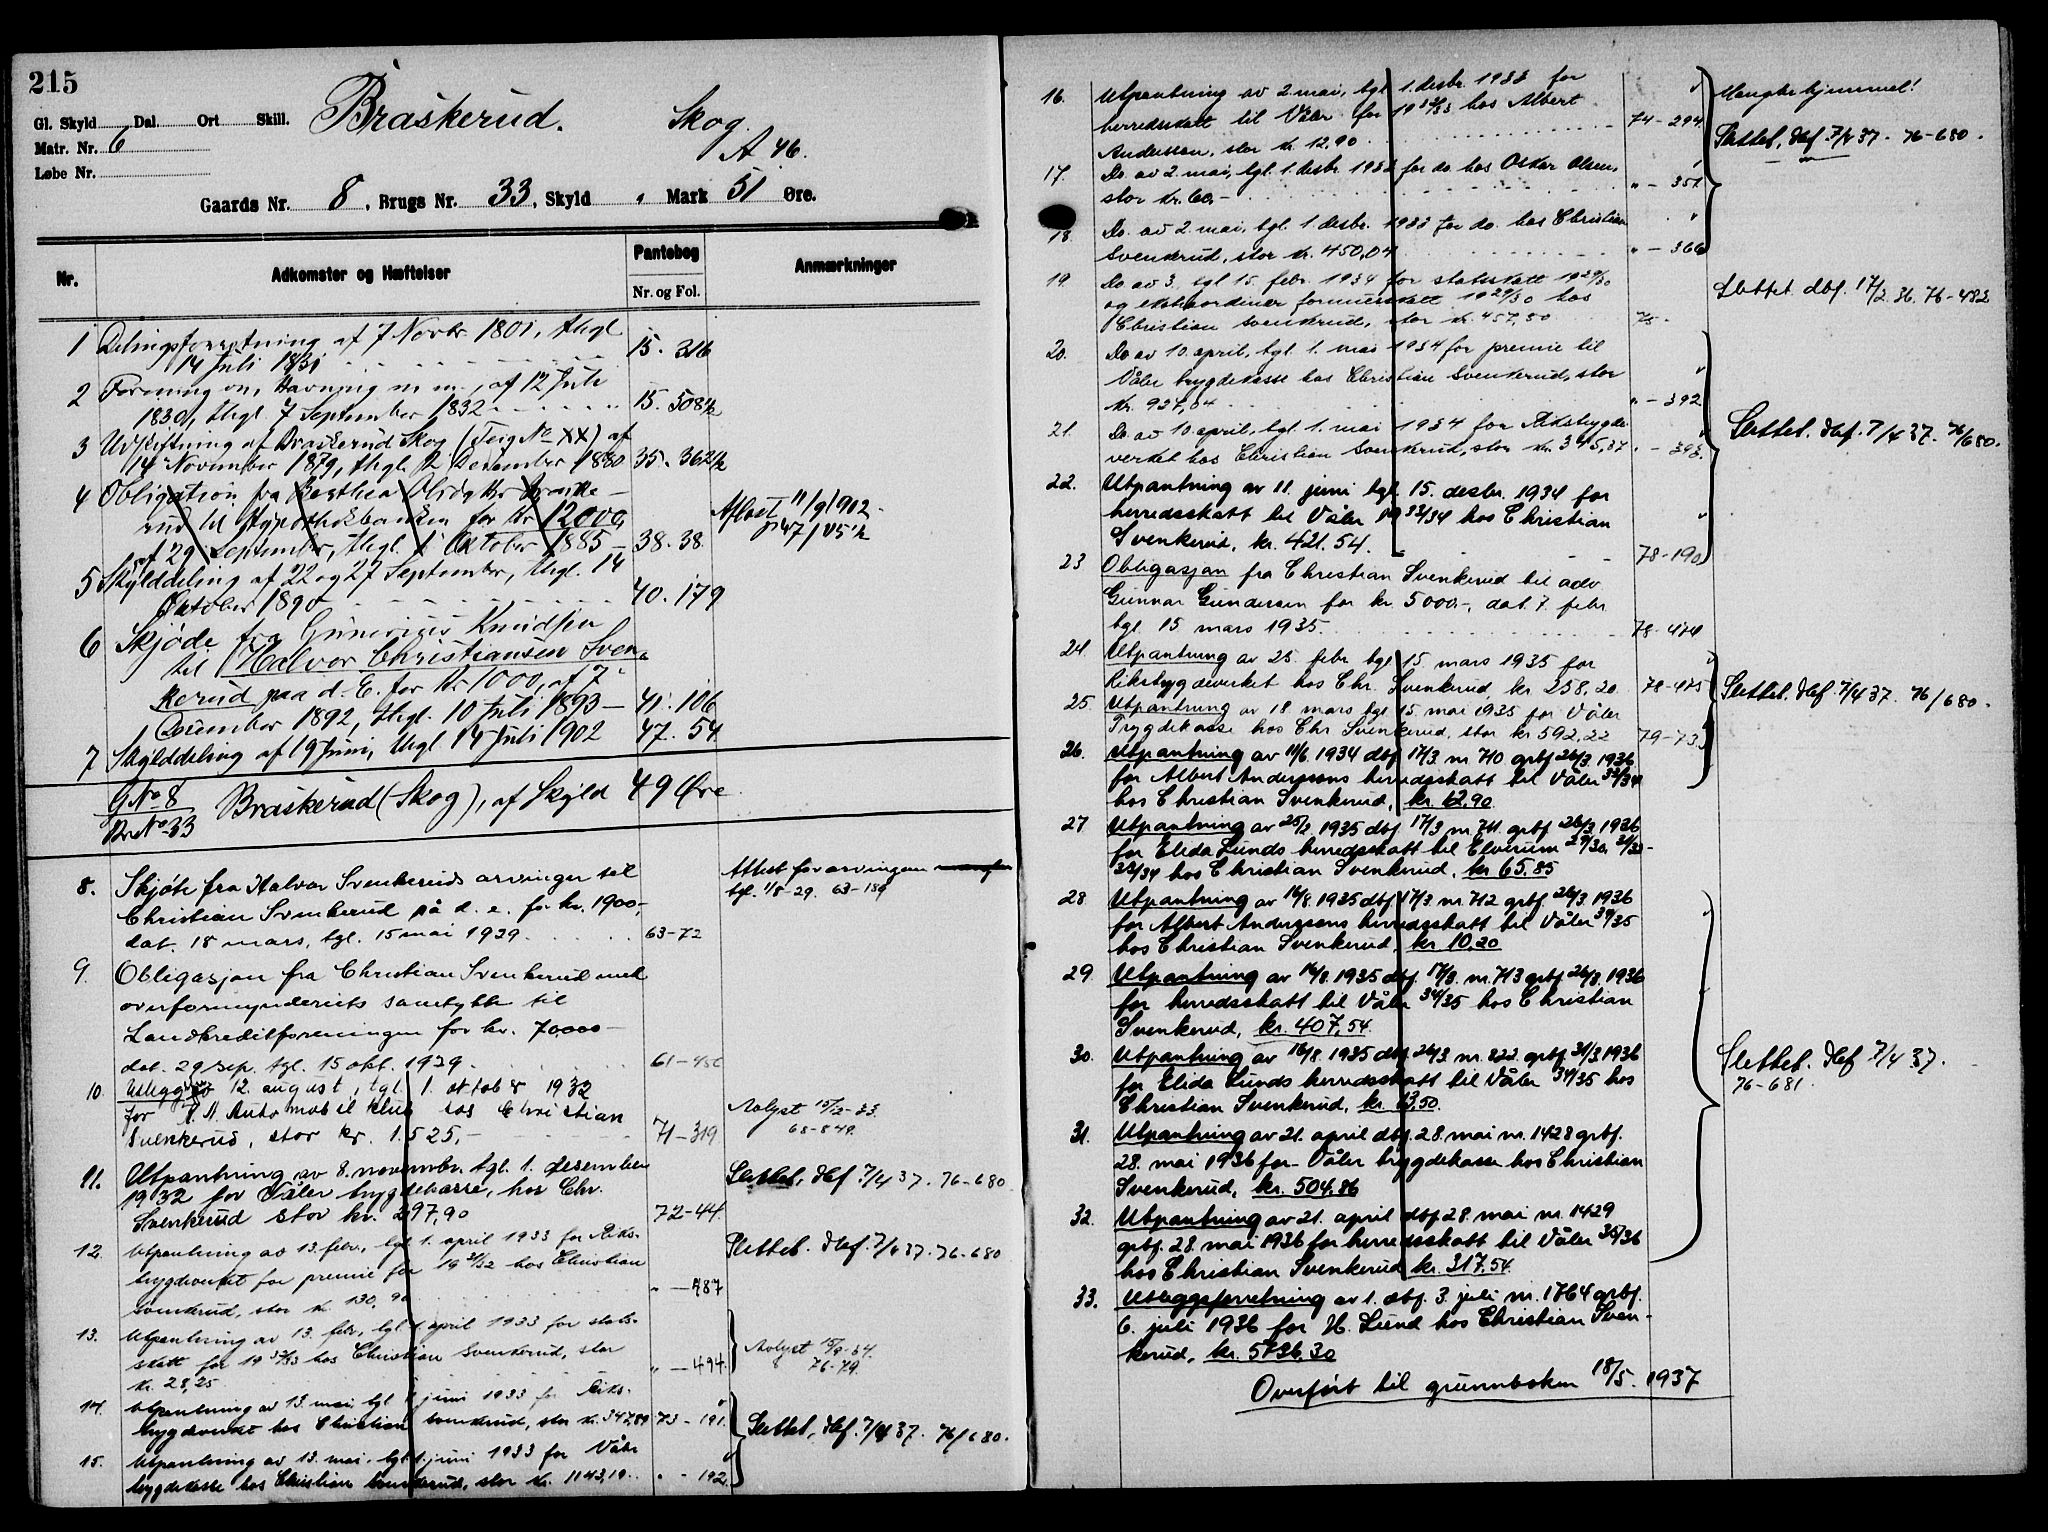 215
Gl. Skyld Dal. Ort Skill. Braskerud. Skog.
Matr. Nr. 6 A 46.
Løbe Nr.
Gaards Nr. 8, Brugs Nr. 33, Skyld " Mark 51 Øre.
Nr. Adkomster og Hæftelser Pantebog Anmærkninger
Nr. og Fol.
1 Delingsforretning af 7 Novbr. 1801, thgl
14 Juli 1831 15. 316
2 Forening om Havning m. m., af 12 Juli
1830, thgl. 7 September 1832 15. 508½
3 Udskiftning af Braskerud Skog (Teig No XX) af
14 November 1879, thgl. 2 Desember 1880 35. 362½
4 Obligation fra Berthea Olsdatter Braske-
rud til Hypothekbanken for Kr 12000 Aflæst 11/9 1902.
af 29 September, thgl. 1 Oktober 1885 38. 38.
5 Skylddeling af 22 og 27 September, thgl. 14
Oktober 1890 40. 179
6 Skjøde fra Gunerius Knudsen
til Halvor Christiansen Sven-
kerud paa d. E. for Kr 1000, af 7
December 1892, thgl. 10 Juli 1893 41. 106
7 Skylddeling af 19 Juni, thgl 14 Juli 1902 47. 54
GNo 8
BrNo 33 Braskerud (Skog), af Skyld 49 Øre
8. Skjøte fra Halvor Svenkeruds arvinger til Attest for arvingene
Christian Svenkerud på d. e. for kr. 1900,- tgl. 1/8-29. 63-189
dat. 18 mars, tgl. 15 mai 1929 63-72
9. Obligasjon fra Christian Svenkerud med
overformynderiets samtykke til
Landkreditforeningen for kr. 7000,00
dat. 29 sep. tgl. 15 okt. 1929
10. Utlegg av 12. august, tgl. 1. oktober 1932
for K. N. Automobil klub hos Christian Avlyst 15/2-33.
Svenkerud, stor kr. 1.525,- 71-319
11. Utpantning av 8. novembr. tgl. 1. desember Slettet, dbf. 7/4 37. 76-680
1932 for Våler trygdekasse, hos Chr.
Svenkerud stor kr. 297,90 72-44
12. Utpantning av 13. febr., tgl. 1. april 1933 for Riks- Slettet. dbf. 7/4 37. 76-680
trygdeverket for premie for 1931/32 hos Christian
Svenkerud, stor kr. 130,90 " - 487
13. Utpantning av 13. febr., tgl. 1. april 1933 for stats-
skatt for 1932/33 hos Christian Svenkerud, stor Avlyst 15/9-34.
kr. 28,25 " - 494. 76-79.
14. Utpantning av 13. mai, tgl. 1. juni 1933 for Riks-
trygdeverket hos Christian Svenkerud, stor kr. 347,89 73-191. Slettet, dbf. 7/4 37. 76/680.
15. Utpantning av 13. mai, tgl. 1. juni 1933 for Våler
trygdekasse hos Christian Svenkerud, stor kr. 1143,19 " - 192
16. Utpantning av 2. mai, tgl. 1. desbr. 1933 for Mangler hjemmel!
herredsskatt til Våler for 1932/33 hos Albert
Anderssen, stor kr. 12,90 74-294 Slettet, dbf. 7/4 37. 76-680.
17. Do. av 2. mai, tgl. 1. desbr. 1933 for do. hos Oskar Olsen,
stor kr. 60,- " - 357
18. Do. av 2. mai, tgl. 1. desbr. 1933 for do. hos Christian
Svenkerud, stor kr. 450,04 " - 366
19. Do av 3, tgl 15. febr. 1934 for statsskatt 1929/30 Slettet dbf. 17/2 36. 76-482
og ekstraordinær formuesskatt 1929/30 hos
Christian Svenkerud, stor kr. 457,50 75-
20. Do av 10. april, tgl. 1. mai 1934 for premie til
Våler trygdekasse hos Christian Svenkerud, stor
kr. 927,04 " - 392
21. Do av 10. april, tgl. 1. mai 1934 for Rikstrygde- Slettet. dbf. 7/4 37. 76/680.
verket hos Christian Svenkerud, stor kr. 345,37 " - 393.
22. Utpantning av 11. juni tgl. 15. desbr. 1934 for
herredsskatt til Våler 1933/34 hos Christian
Svenkerud, kr. 421.54. 78-190
23 Obligasjon fra Christian Svenkerud til adv
Gunnar Gundersen for kr. 5000,-, dat. 7. febr.
tgl. 15 mars 1935. 78-474
24. Utpantning av 25. febr tgl 15. mars 1935 for
Rikstrygdeverket hos Chr. Svenkerud, kr 258,20. 78-475 Slettet. dbf. 7/4 37. 76/680.
25. Utpantning av 18. mars tgl 15. mai 1935 for Våler
Trygdekasse hos Chr Svenkerud, stor kr 592,22 79-73.
26. Utpantning av 11/6 1934 dbf 17/3. nr 710 grbf 26/3. 1936
for Albert Anderssens herredsskatt til Våler 33/34
hos Christian Svenkerud, kr. 12.90.
27 Utpantning av 25/2 1935 dbf. 17/3 nr. 711. grbf 26/3. 1936
for Elida Lunds herredsskatt til Elverum 29/30. 31/32-
33/34 hos Christian Svenkerud, kr 65.85
28 Utpantning av 16/8. 1935 dbf 17/3. nr. 712 grbf. 26/3. 1936
for Albert Anderssens herredsskatt til Våler 34/35
hos Christian Svenkerud kr 10,20
29 Utpantning av 16/8. 1935 dbf. 17/3. nr. 713 grbf 26/3. 1936
for herredsskatt til Våler 34/35 hos Christian
Svenkerud, kr. 407,54.
30. Utpantning av 16/8. 1935 dbf 26/3. nr. 822. grbf. 31/3 1936 Slettet. dbf 7/4 37.
for Elida Lunds herredsskatt til Våler 34/35 hos 76-681.
Christian Svenkerud, kr. 13,50.
31. Utpantning av 21. april dbf. 28. mai nr. 1428 grbf.
28. mai 1936 for Våler trygdekasse hos Christian
Svenkerud, kr. 504.86
32. Utpantning av 21. april dbf 28. mai nr. 1429
grbf. 28. mai 1936 for herredsskatt til Våler 35/36
hos Christian Svenkerud kr. 317,54.
33. Utleggsforretning av 1. dbf. 3. juli nr. 1764 grbf.
6. juli 1936 for H. Lund hos Christian Sven-
kerud, kr. 5736,30
Overført til grunnboken 18/5. 1937